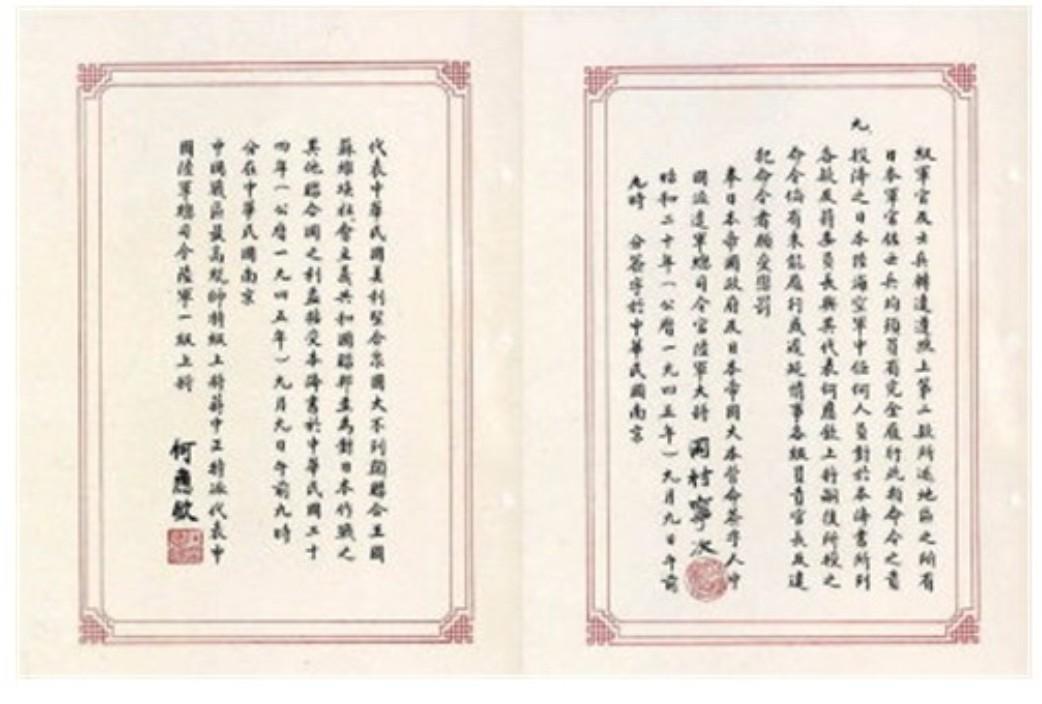 級軍官及士兵轉達遵照上第二款所述地區之所有
日本軍官佐士兵均須負有完全履行此類命令之責
九、投降之日本陸海空軍中任何人員對於本降書所列
各款及蔣委員長與其代表何應欽上將嗣後所授之
命令倘有未能履行或遲延情事各級負責官長及違
犯命令者願受懲罰
奉日本帝國政府及日本帝國大本營命簽字人中
國派遣軍總司令官陸軍大將 岡村寧次
昭和二十年(公曆一九四五年)九月九日午前
九時 分簽字於中華民國南京
代表中華民國美利堅合眾國大不列顛聯合王國
蘇維埃社會主義共和國聯邦並為對日本作戰之
其他聯合國之利益接受本降書於中華民國三十
四年(公曆一九四五年)九月九日午前九時
分在中華民國南京
中國戰區最高統帥特級上將蔣中正特派代表中
國陸軍總司令陸軍一級上將 何應欽